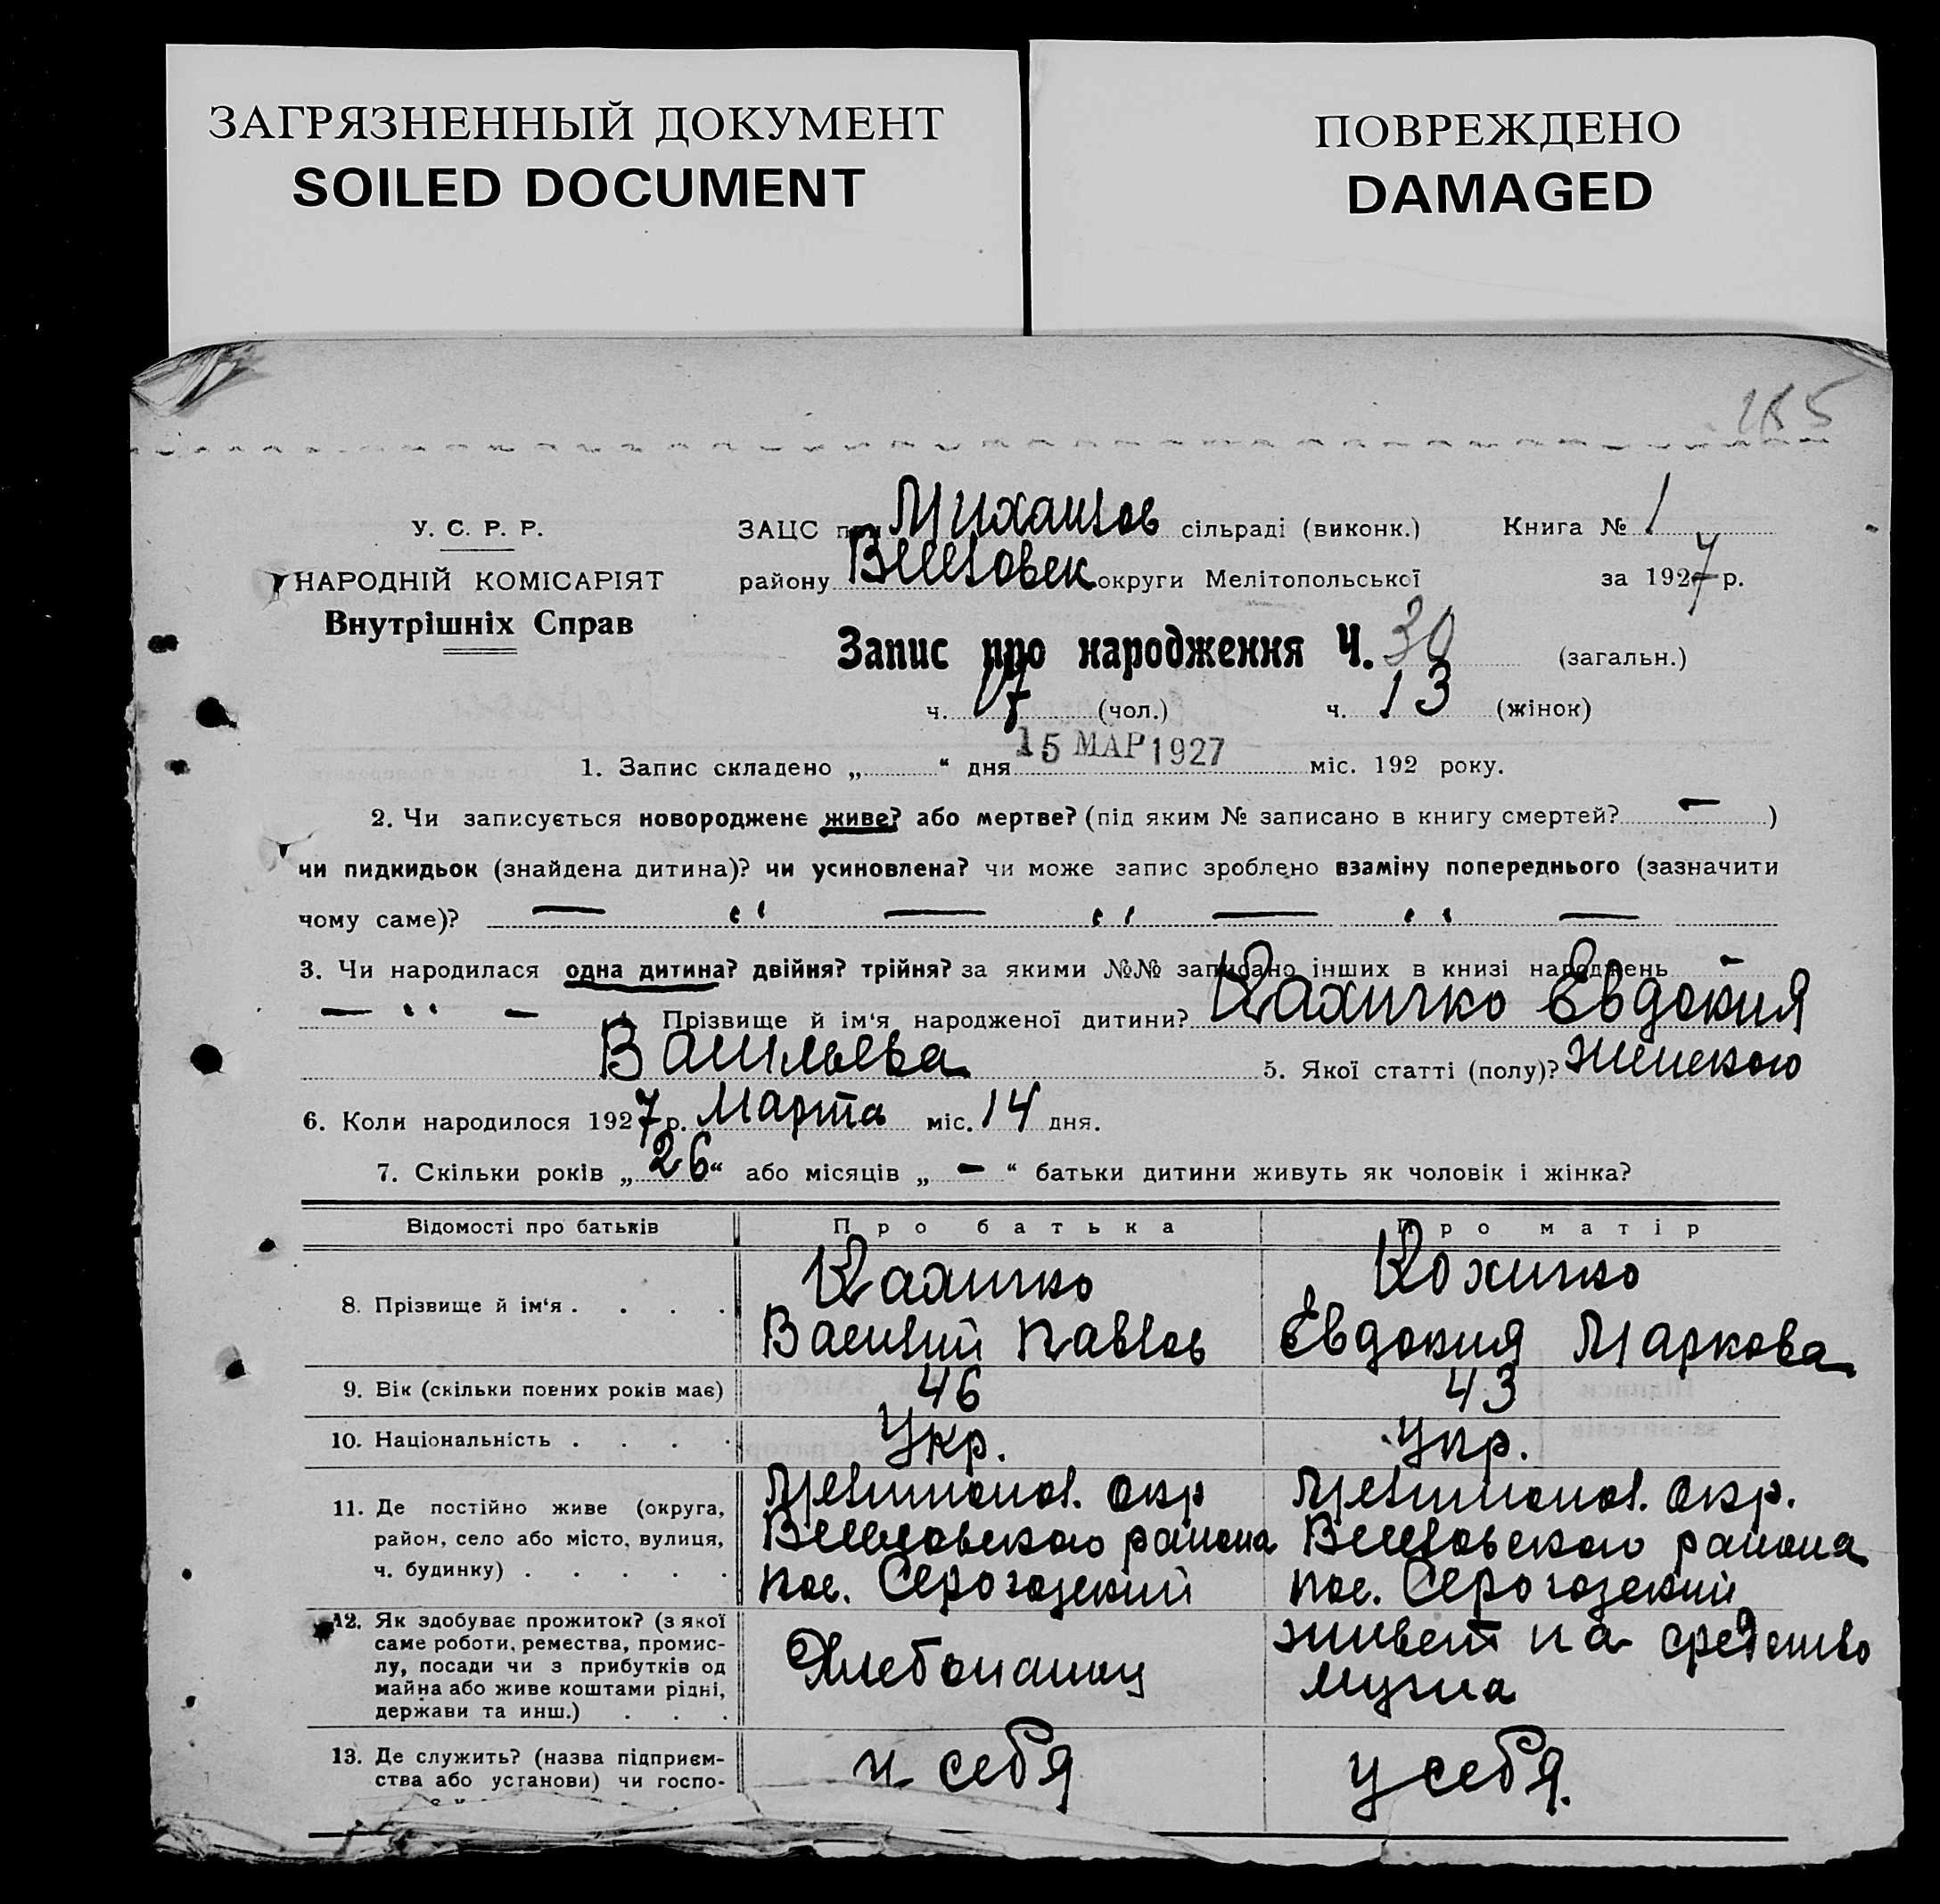 ЗАГРЯЗНЕННЫЙ ДОКУМЕНТ
SOILED DOCUMENT
ПОВРЕЖДЕНО
DAMAGED
У. С. Р. Р.
НАРОДНІЙ КОМІСАРІЯТ
Внутрішніх Справ
ЗАЦС при Михайлов сільраді (виконк.) Книга № 1
району Веселовск округи Мелітопольської за 1927 р.
Запис про народження Ч. 30 (загальн.)
ч. 17 (чол.) ч. 13 (жінок)
1. Запис складено „ “ дня 15 МАР 1927 міс. 192 року.
2. Чи записується новороджене живе? або мертве? (під яким № записано в книгу смертей? — )
чи пидкидьок (знайдена дитина)? чи усиновлена? чи може запис зроблено взаміну попереднього (зазначити
чому саме)? — " — " — " —
3. Чи народилася одна дитина? двійня? трійня? за якими №№ записано інших в книзі народжень —
— " — 4. Прізвище й ім'я народженої дитини? Кахичко Евдокия
Васильева 5. Якої статті (полу)? женского
6. Коли народилося 1927 р. Марта міс. 14 дня.
7. Скільки років „ 26 “ або місяців „ — “ батьки дитини живуть як чоловік і жінка?
Відомості про батьків Про батька Про матір
8. Прізвище й ім'я . . . . Кахичко Кохичко
Василий Павлов Евдокия Маркова
9. Вік (скільки повних років має) 46 43
10. Національність . . . . Укр. Укр.
11. Де постійно живе (округа, Мелитопол. окр Мелитопол. окр.
район, село або місто, вулиця, Веселовского района Веселовского района
ч. будинку) . . . . . пос. Серогозский пос. Серогозский
12. Як здобуває прожиток? (з якої
саме роботи, ремества, промис-
лу, посади чи з прибутків од
майна або живе коштами рідні,
держави та инш.) . . . Хлебопашец живет на средство
мужа
13. Де служить? (назва підприєм-
ства або установи) чи госпо- у себя у себя.